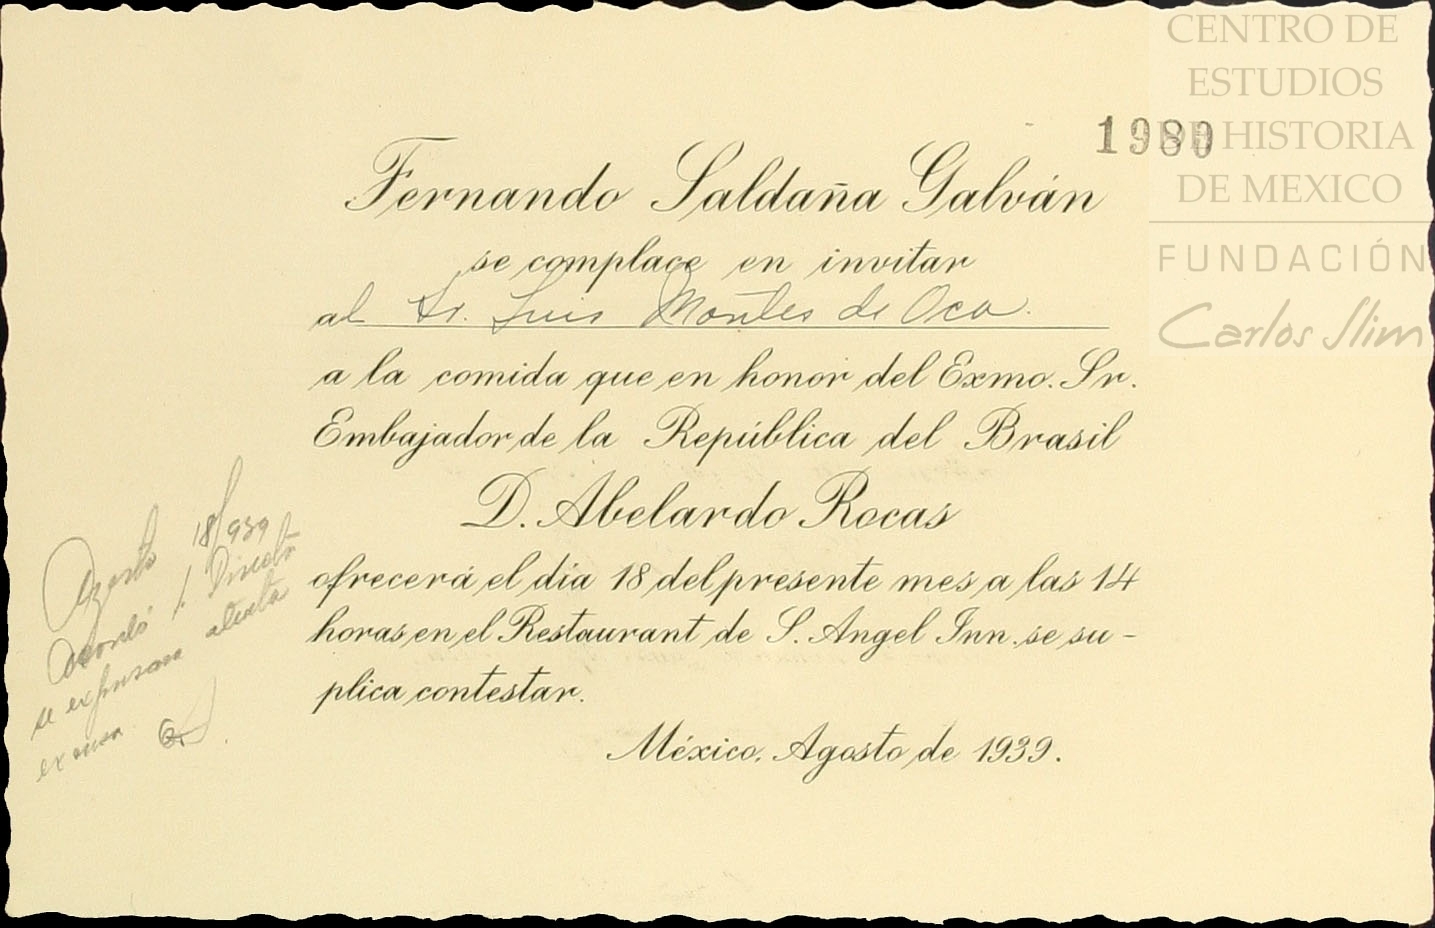 CENTRO DE
ESTUDIOS
DE HISTORIA
DE MEXICO
FUNDACIÓN
Carlos Slim
1980
Fernando Saldaña Galván
se complace en invitar
al Sr. Luis Montes de Oca.
a la comida que en honor del Exmo. Sr.
Embajador de la República del Brasil
D. Abelardo Rocas
ofrecerá el día 18 del presente mes a las 14
horas en el Restaurant de S. Angel Inn. se su-
plica contestar.
México, Agosto de 1939.
Agosto 18/939
Acordó
se expresara atenta
excusa